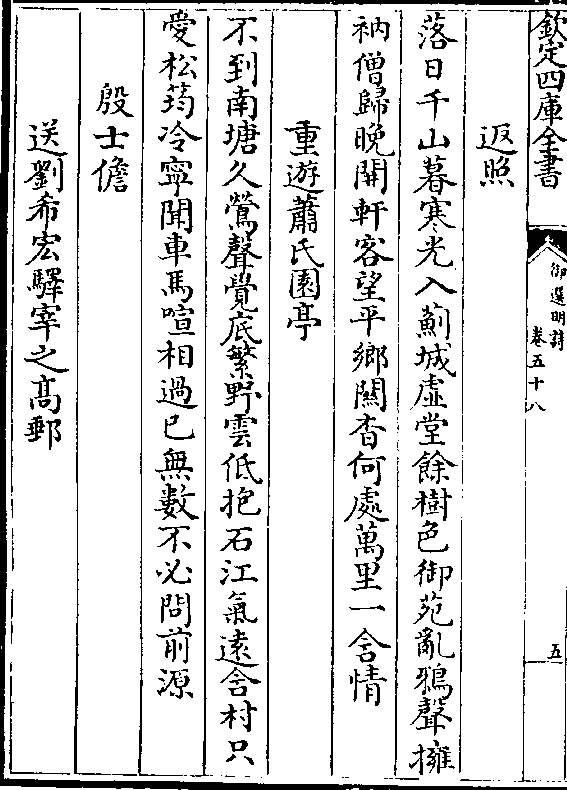 欽定四庫全書
御選明詩
卷五十八
五
返照
落日千山暮寒光入薊城虛堂餘樹色御苑亂鴉聲擁
衲僧歸晚開軒客望平鄉關杳何處萬里一含情
重遊蕭氏園亭
不到南塘久鶯聲覺底繁野雲低抱石江氣遠含村只
愛松筠冷寧聞車馬喧相過已無數不必問前源
殷士儋
送劉希宏驛宰之髙郵